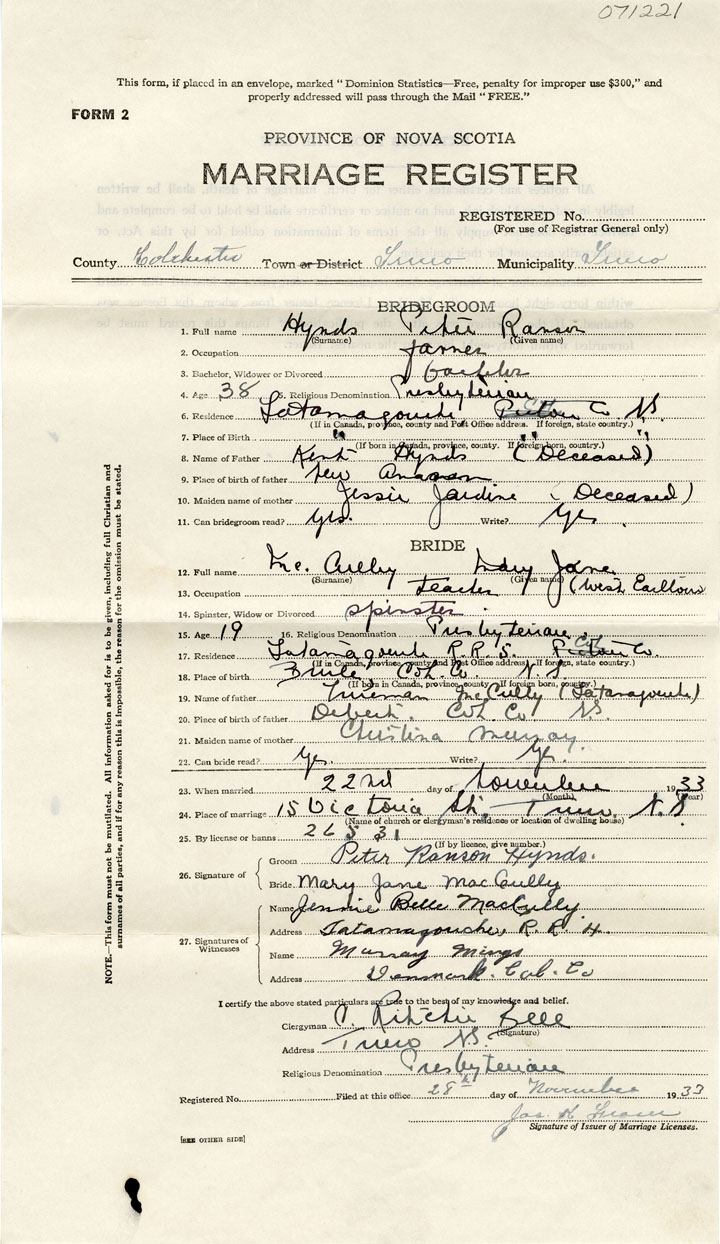 071221
This form, if placed in an envelope, marked "Dominion Statistics—Free, penalty for improper use $300," and
properly addressed will pass through the Mail "FREE."
FORM 2
PROVINCE OF NOVA SCOTIA
MARRIAGE REGISTER
REGISTERED No.
(For use of Registrar General only)
County Colchester Town or District Truro Municipality Truro
BRIDEGROOM
1. Full name Hynds Peter Ranson
(Surname) (Given name)
2. Occupation farmer
3. Bachelor, Widower or Divorced bachelor
4. Age 38 5. Religious Denomination Presbyterian
6. Residence Tatamagouche Pictou Co. N.S.
(If in Canada, province, county and Post Office address. If foreign, state country.)
7. Place of Birth " " "
(If born in Canada, province, county. If foreign born, country.)
8. Name of Father Kent Hynds (Deceased)
9. Place of birth of father New
10. Maiden name of mother Jessie Jardine (Deceased)
11. Can bridegroom read? Yes. Write? Yes
BRIDE
12. Full name Mc. Cully Mary Jane
(Surname) (Given name)
13. Occupation teacher (West Earltown
14. Spinster, Widow or Divorced spinster.
15. Age 19 16. Religious Denomination Presbyterian
17. Residence Tatamagouche R.R.5. Pictou Co. Col.
(If in Canada, province, county and Post Office address. If foreign, state country.)
18. Place of birth Brule Col. Co. N.S.
(If born in Canada, province, county. If foreign born, country.)
19. Name of father Trueman McCully (Tatamagouche)
20. Place of birth of father Debert. Col. Co. N.S.
21. Maiden name of mother Christina Murray.
22. Can bride read? Yes. Write? Yes.
23. When married 22nd day of November 1933
(Month) (Year)
24. Place of marriage 15 Victoria St., Truro, N.S.
(Name of church or clergyman's residence or location of dwelling house)
25. By license or banns 26531
(If by licence, give number.)
26. Signature of
Groom Peter Ranson Hynds.
Bride Mary Jane MacCully
27. Signatures of Witnesses
Name Jennie Belle MacCully
Address Tatamagouche, R.R. 4.
Name Murray Mingo
Address Denmark. Col. Co
I certify the above stated particulars are true to the best of my knowledge and belief.
Clergyman Ritchie Bell
(Signature)
Address Truro N.S.
Religious Denomination Presbyterian
Registered No. Filed at this office 28th day of November 1933
Jas. H.
Signature of Issuer of Marriage Licenses.
[SEE OTHER SIDE]
NOTE.—This form must not be mutilated. All information asked for is to be given, including full Christian and
surnames of all parties, and if for any reason this is impossible, the reason for the omission must be stated.